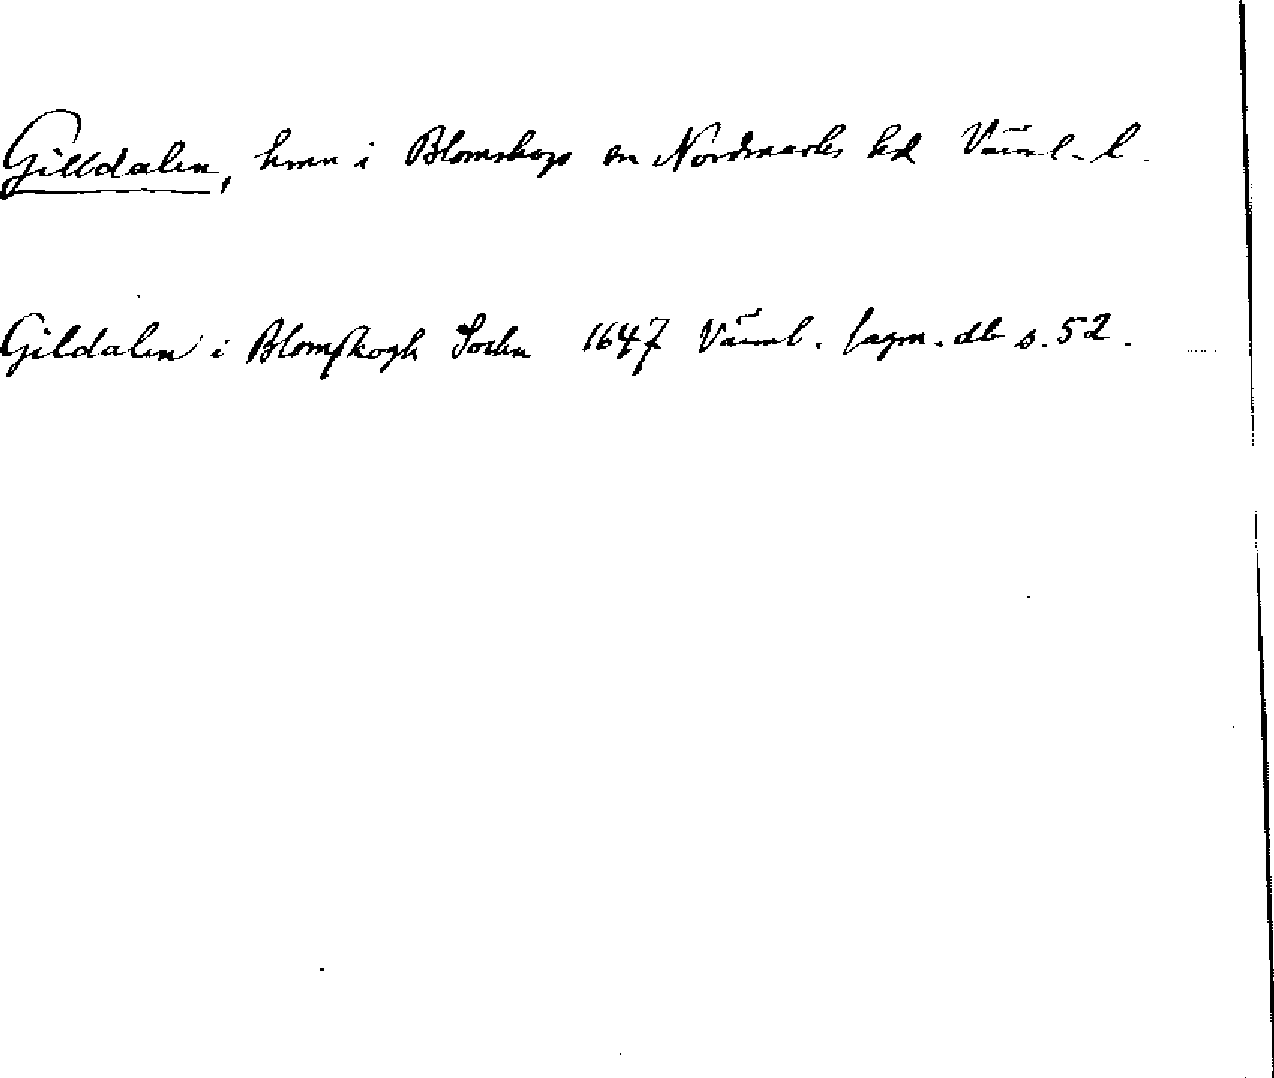 Gilldalen, hmn i Blomskogs sn Nordmarks hd Värml. l.
Gildalen i Blomskogh Sochn 1647 Värml. lagm. db s. 52.